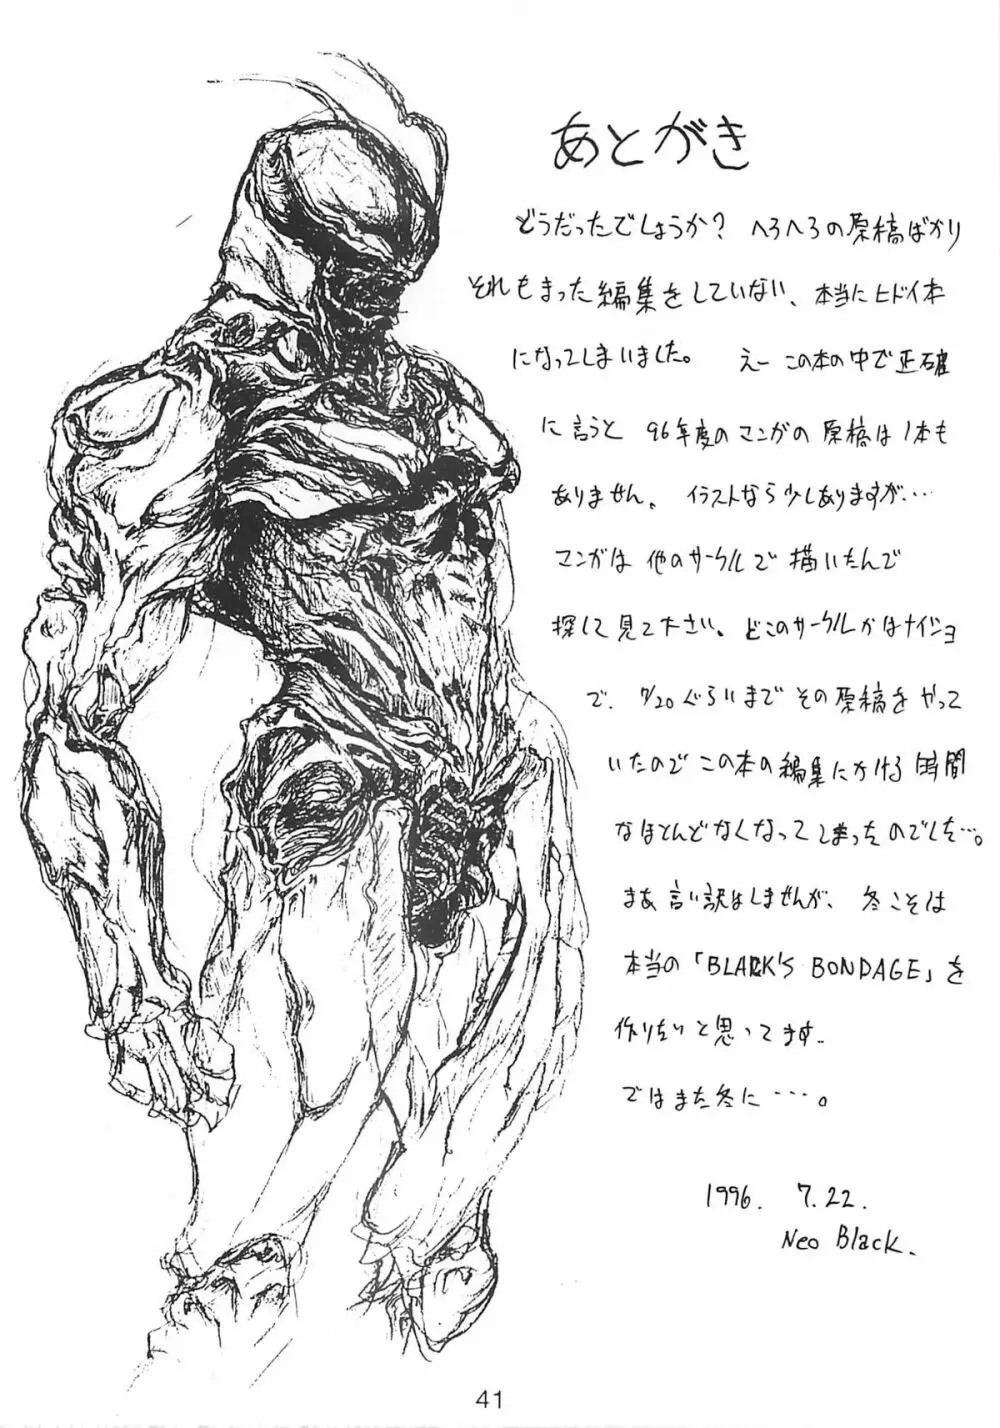 あとがき
どうだったでしょうか? へろへろの原稿ばかり
それもまった編集をしていない、本当にヒドイ本
になってしまいました。 えー この本の中で正確
に言うと 96年度のマンガの原稿は1本も
ありません。 イラストなら少しありますが…
マンガは他のサークルで描いたんで
探して見て下さい。どこのサークルかはナイショ
で、7/20ぐらいまでその原稿をやって
いたのでこの本の編集にかける時間
なほとんどなくなってしまったのでした…。
まあ言い訳はしませんが、冬こそは
本当の「BLACK'S BONDAGE」を
作りたいと思ってます。
ではまた冬に……。
1996. 7.22.
Neo Black.
41